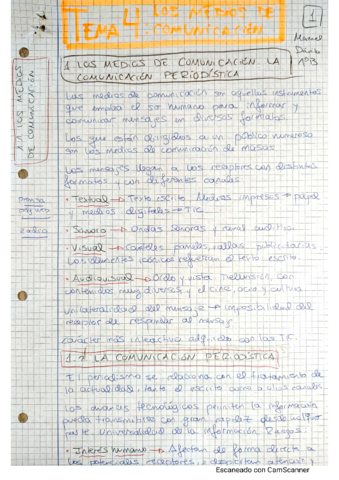 TEMA 4: LOS MEDIOS DE
COMUNICACIÓN
1
Manuel
Nº13
1. LOS MEDIOS DE COMUNICACIÓN LA
COMUNICACIÓN PERIODÍSTICA
1. LOS MEDIOS
DE COMUNICACIÓN
Los medios de comunicación son aquellos instrumentos
que emplea el ser humano para informar y
comunicar mensajes en diversos formatos.
Los que están dirigidos a un público numeroso
son los medios de comunicación de masas.
Los mensajes llegan a los receptores con distintos
formatos y con diferentes canales
Prensa
Radio
• Textual → Texto escrito. Medios impresos → papel
y medios digitales → TIC.
• Sonora → Ondas sonoras y canal auditivo.
• Visual → Carteles, paneles, vallas publicitarias.
Los elementos icónicos refuerzan el texto escrito.
• Audiovisual → Oído y vista. Televisión, con
contenidos muy diversos y el cine, ocio y cultura
Unilateralidad del mensaje → imposibilidad del
receptor de responder al mensaje.
Carácter más interactivo adquirido con las TIC.
1.2 LA COMUNICACIÓN PERIODÍSTICA
El periodismo se relaciona con el tratamiento de
la actualidad, tanto el escrito como a otros canales
Los avances tecnológicos permiten la información
pueda transmitirse con gran rapidez desde cualquier
parte. Universalidad de la información. Rasgos:
• Interés humano → Afectan de forma directa a
los potenciales receptores, despiertan atención y
Escaneado con CamScanner